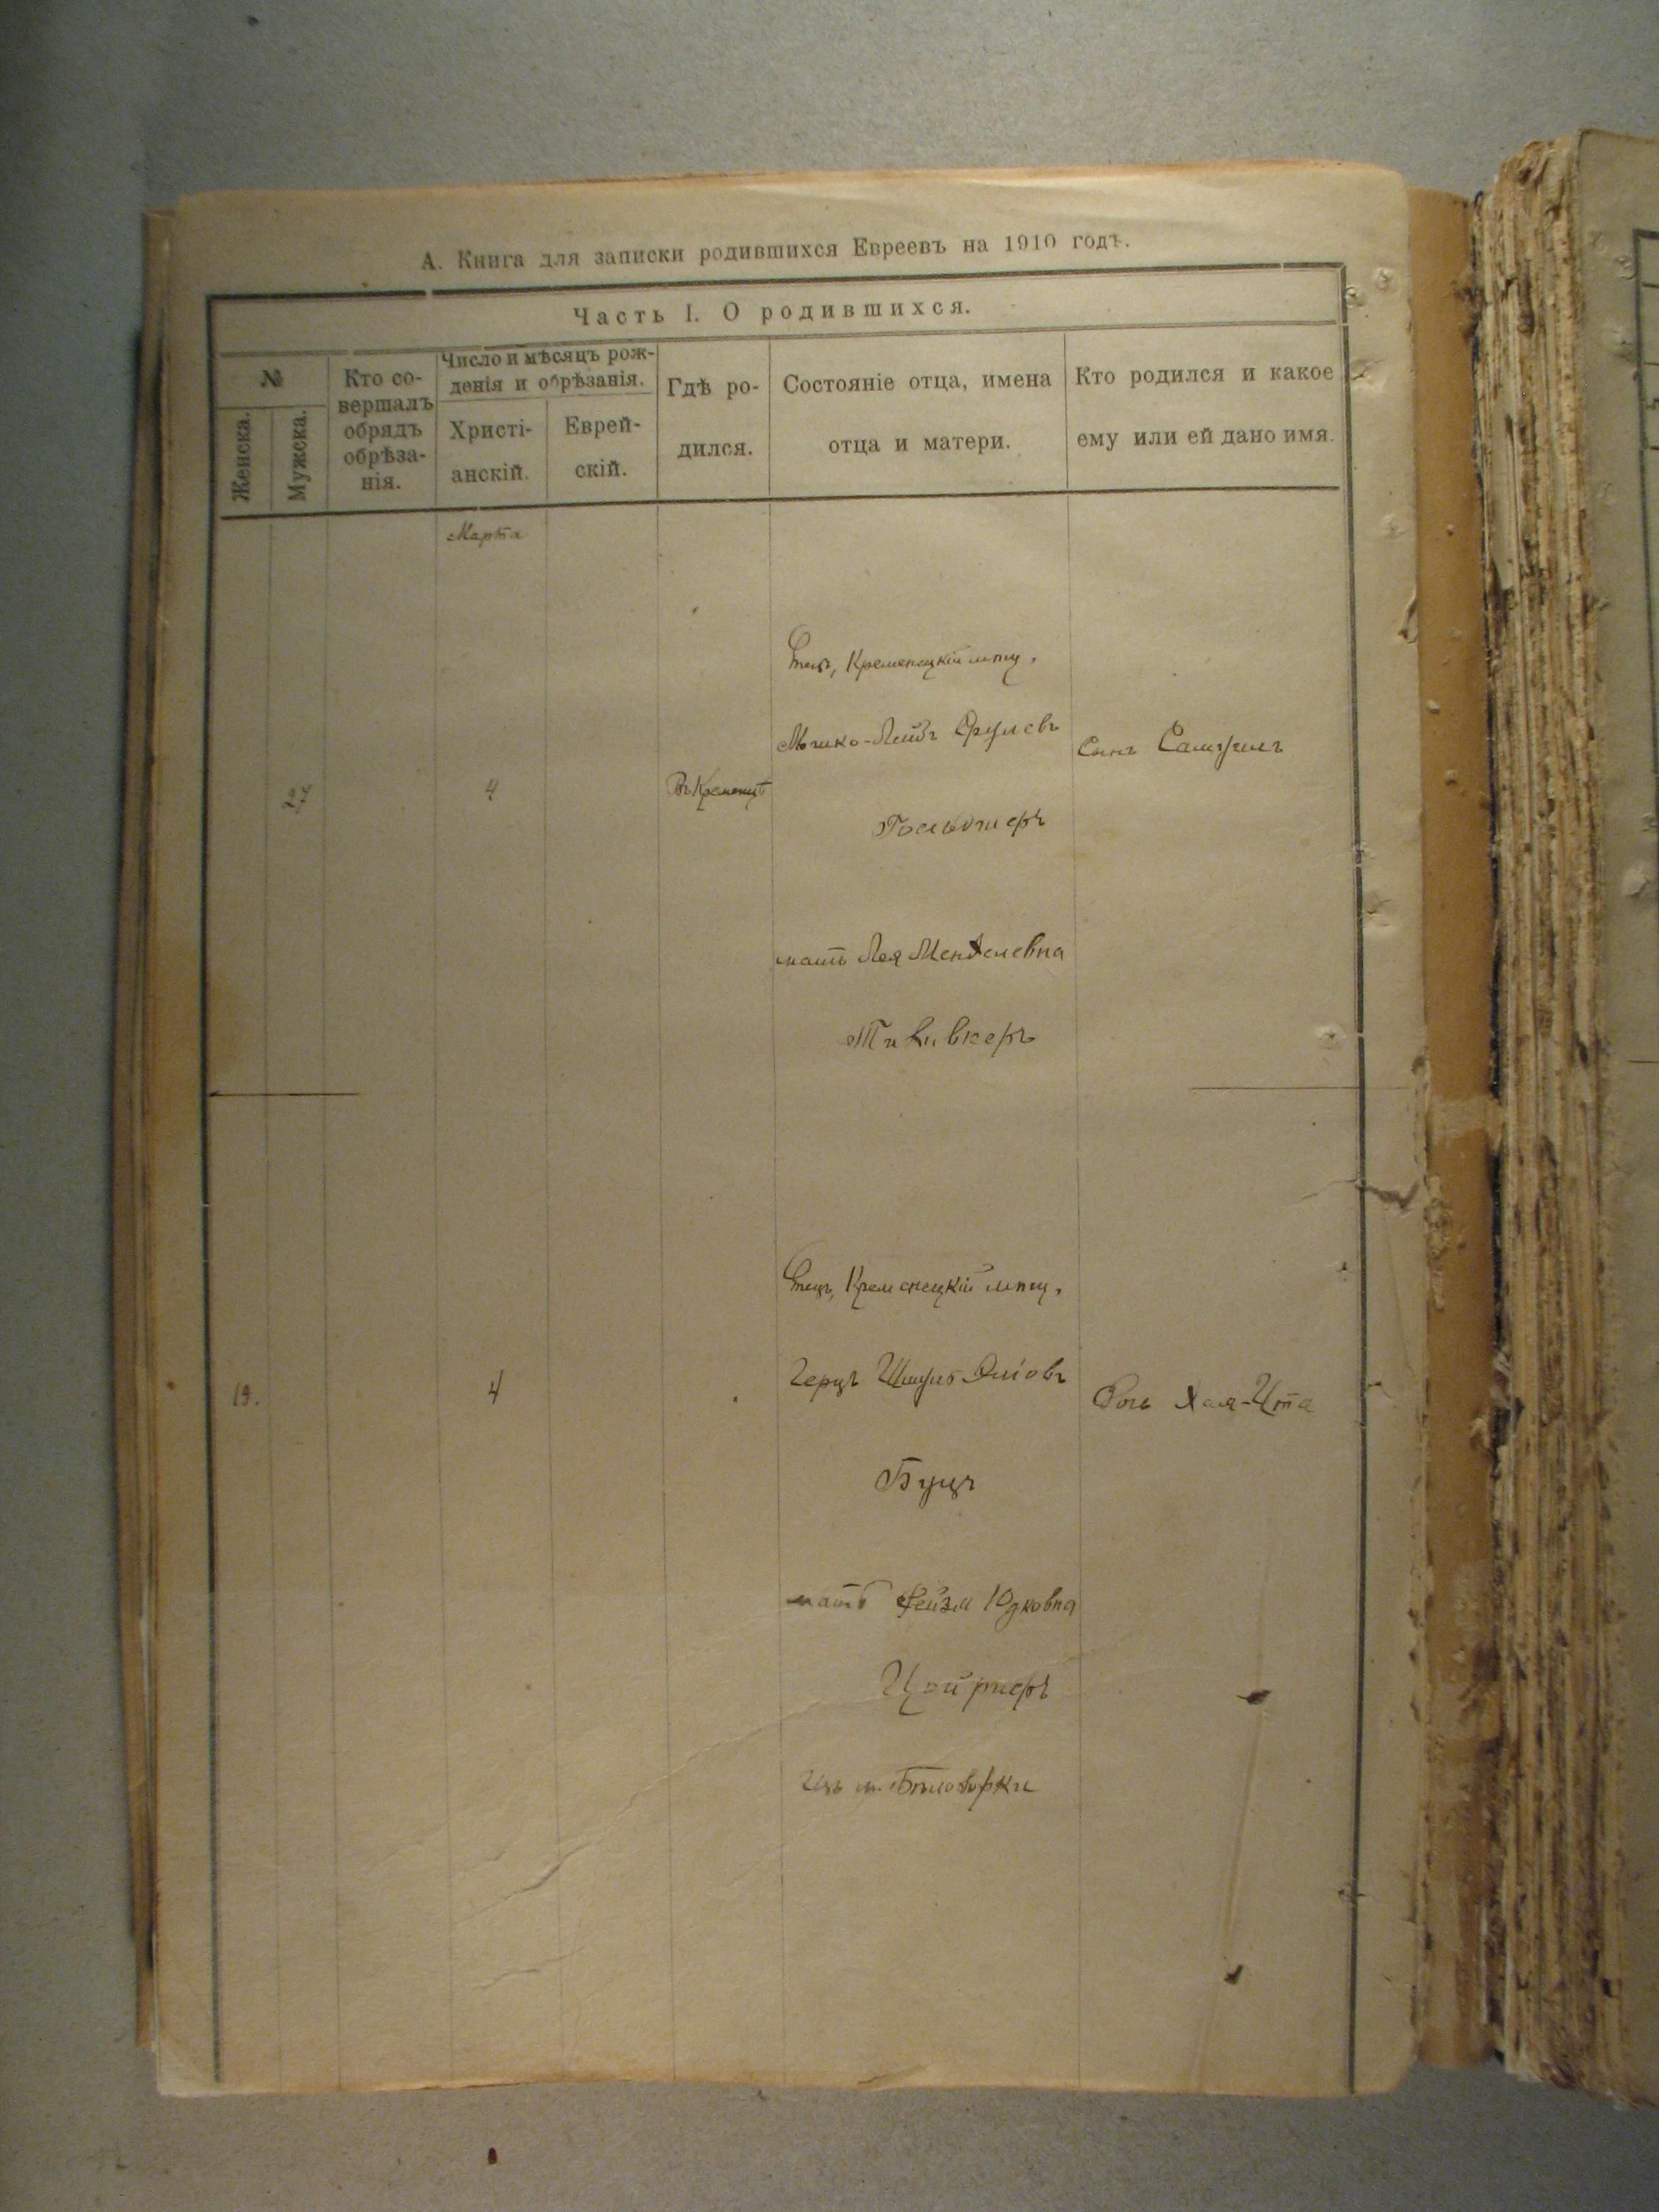 А. Книга для записки родившихся Евреевъ на 1910 годъ.
Часть I. О родившихся.
№
Женска.
Мужска.
Кто со-
вершалъ
обрядъ
обрѣза-
нія.
Число и мѣсяцъ рож-
денія и обрѣзанія.
Христі-
анскій.
Еврей-
скій.
Гдѣ ро-
дился.
Состояніе отца, имена
отца и матери.
Кто родился и какое
ему или ей дано имя.
Марта
4
Въ Кременцѣ
Отецъ, Кременецкій мѣщ.
Мошко-Лейбъ Сруловъ
Гольдшеръ
мать Лея Менделевна
Тикивкеръ
Сынъ Самуилъ
19.
4
Отецъ, Кременецкій мѣщ.
Герцъ Шмуль
Буцъ
мать Юдковна
изъ м. Бѣлозорки
Дочь Хая-Ита